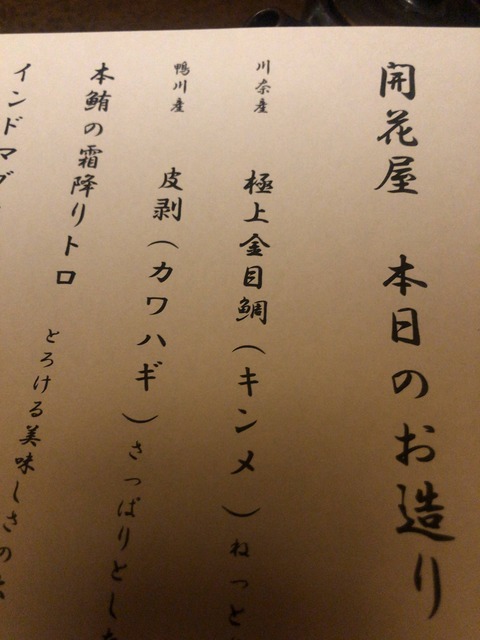 開花屋 本日のお造り
川奈産 極上金目鯛（キンメ）ねっと
鴨川産 皮剥（カワハギ）さっぱりとした
本鮪の霜降りトロ とろける美味しさの
インドマグ